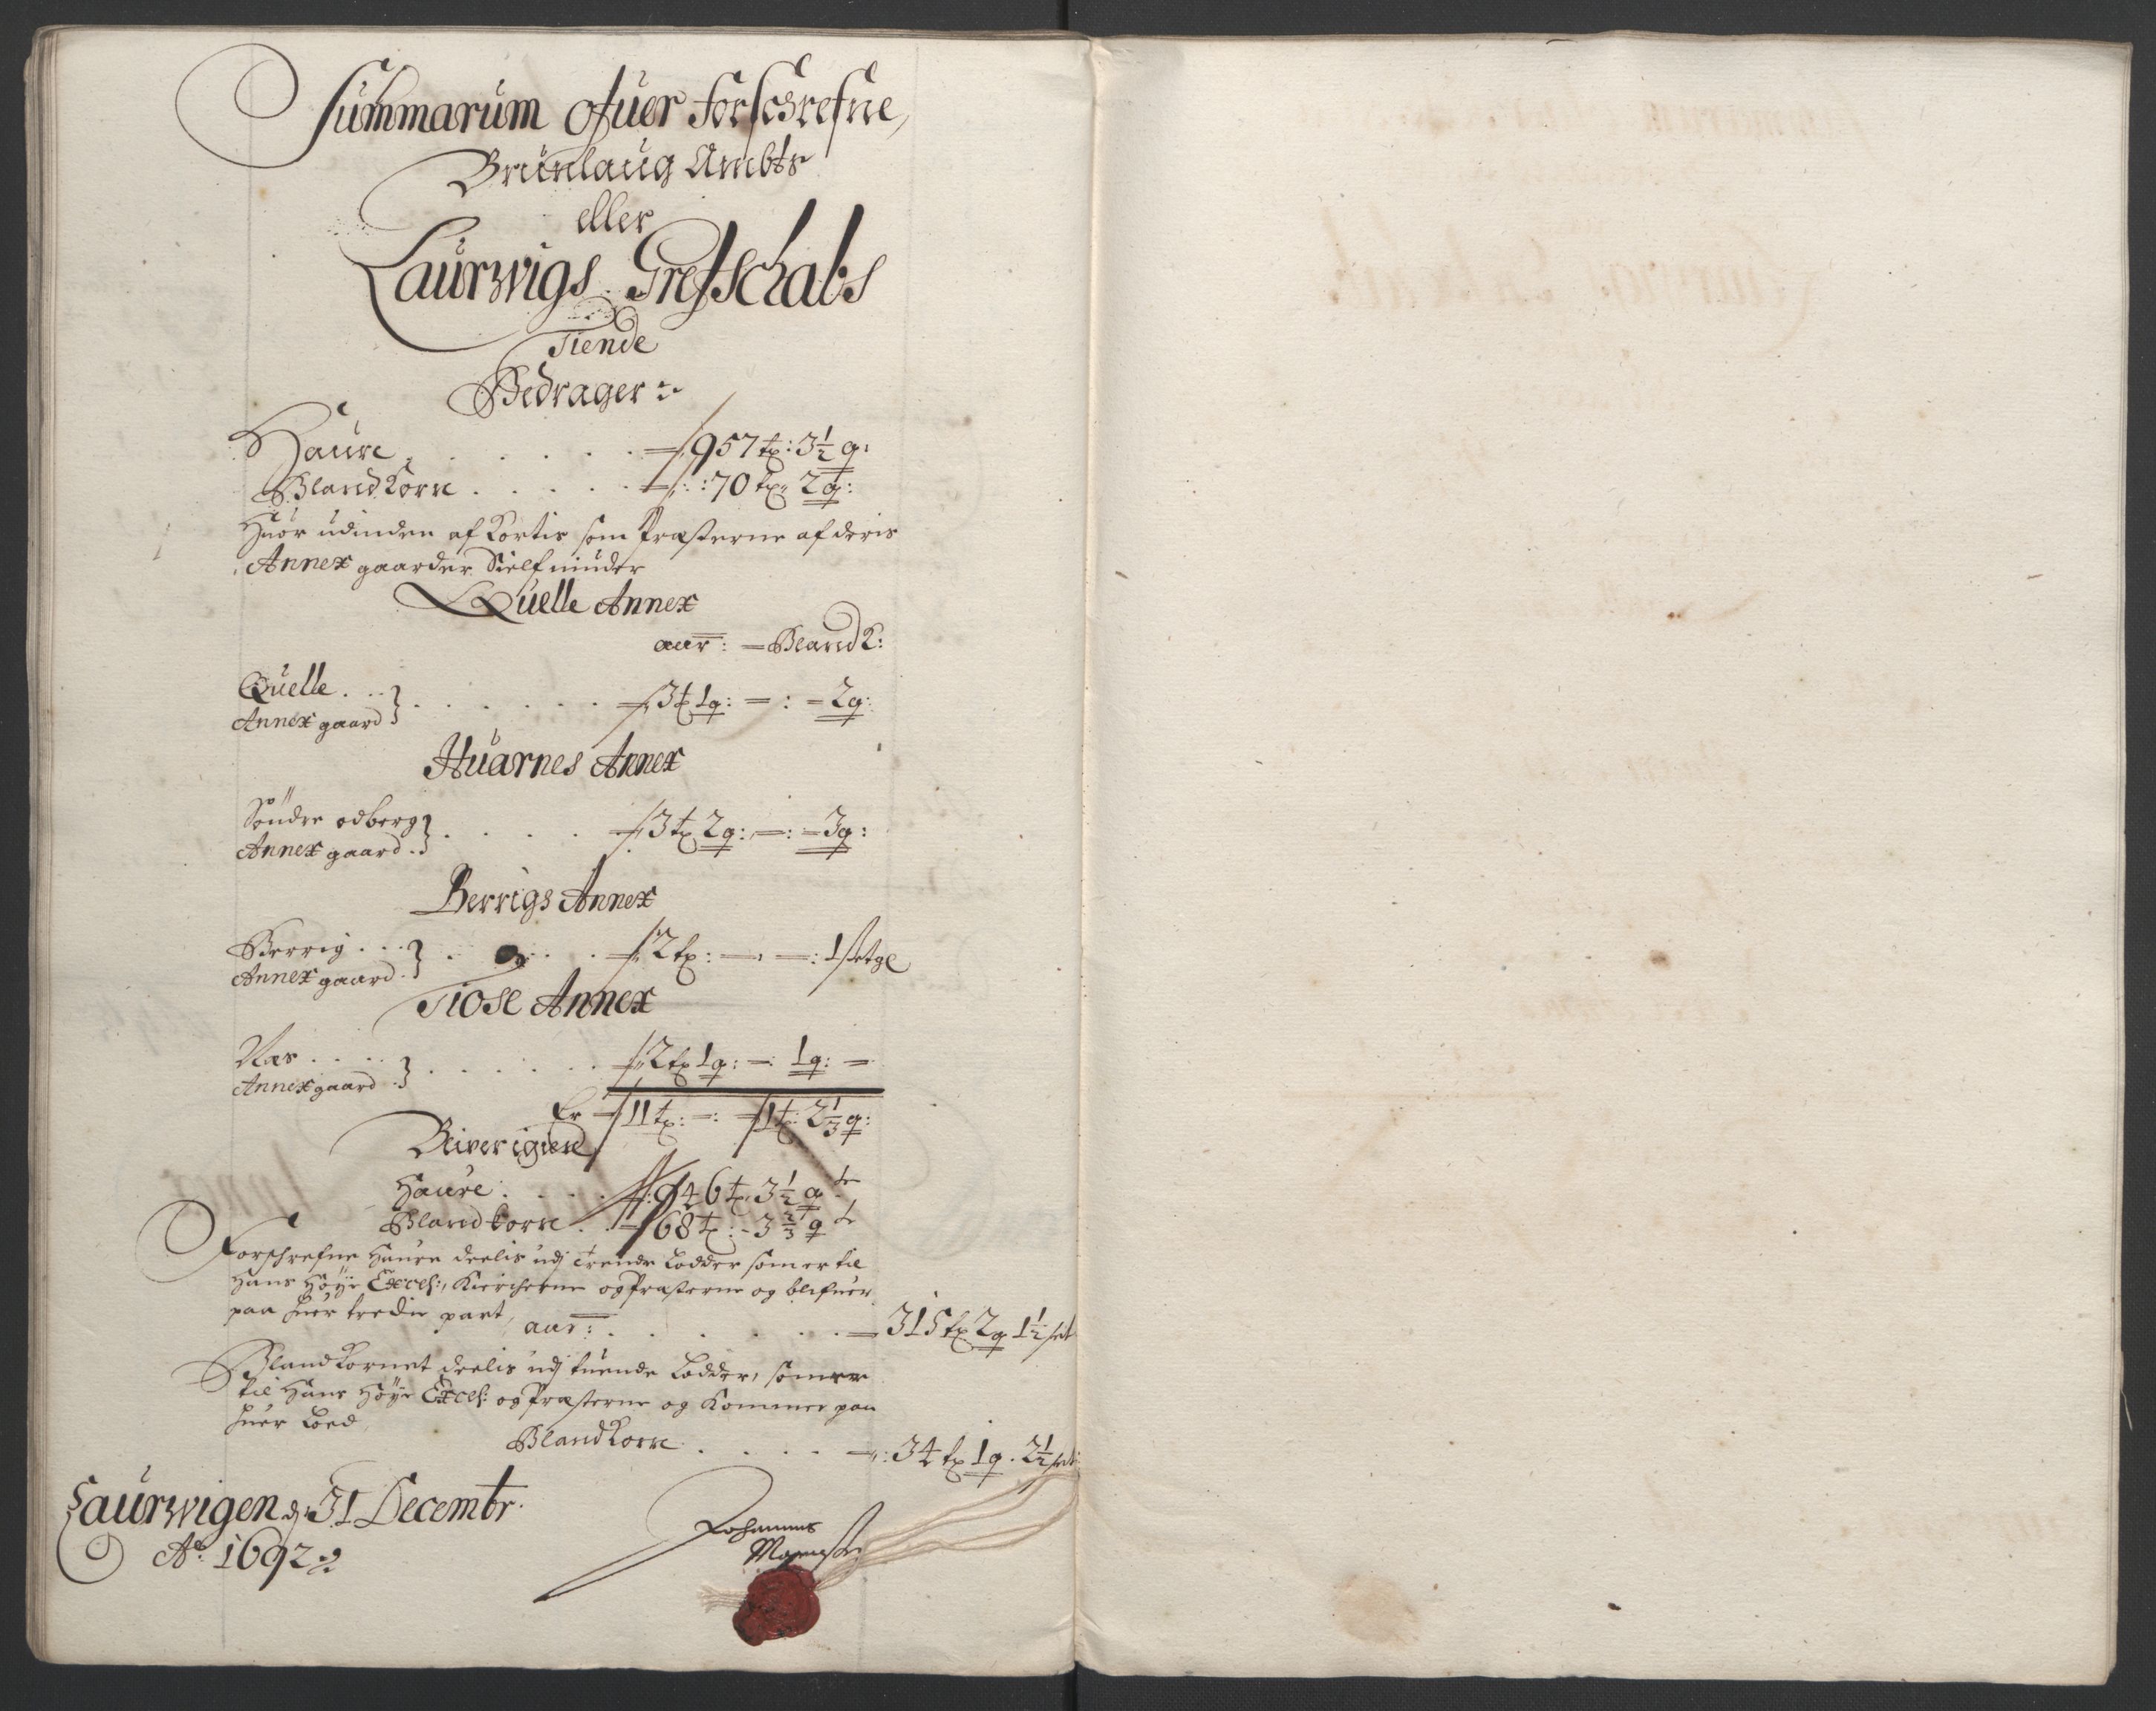 Summarum ofuer Forschrefne,
Brunlaug Ambts
eller
Laurwigs Grefschabs
Tiende
Bedrager
Haure . . . . . 957 tr: 3½ q:
Bland Korn . . . . . 70 tr: 2 q:
Huor udinden af Kortis som Præsterne af deris
Annex gaarder Sielf niuder
Quelle Annex
aur: = Bland K:
Quelle . . .
Annex gaard } . . . . . 3 t 1 q: = : = 2 q:
Huarnes Annex
Söndre odberg
Annex gaard } . . . . 3 tr 2 q: = : = 3 q:
Berrigs Annex
Berrig . . .
Annex gaard } . . . . 2 tr: = = : 1 setge
Tiose Annex
Næs . . . .
Annex gaard } . . . . . 2 tr 1 q: = 1 q: =
Er 11 tr: = : 1 t: 2⅓ q:
Bliver igien
Haure . . . . 946 tr 3½ q
Bland korn . . 68 t: - 3⅔ q
Forschrefne Haure deelis udj trende Lodder som er til
Hans Höye Excel:, Kiercherne og Præsterne og blifuer
paa huer tredie part, aur: . . . . . = 315 tr 2 q 1½ set
Bland Kornet deelis udj tuende Lodder, som er
til Hans Höye Excel: og Præsterne og Kommer paa
huer Loed,
Bland Korn . . . . = : 34 tr 1 q . 2½ set:
Laurwigen d 31 Decembr.
Ao: 1692
Johannes